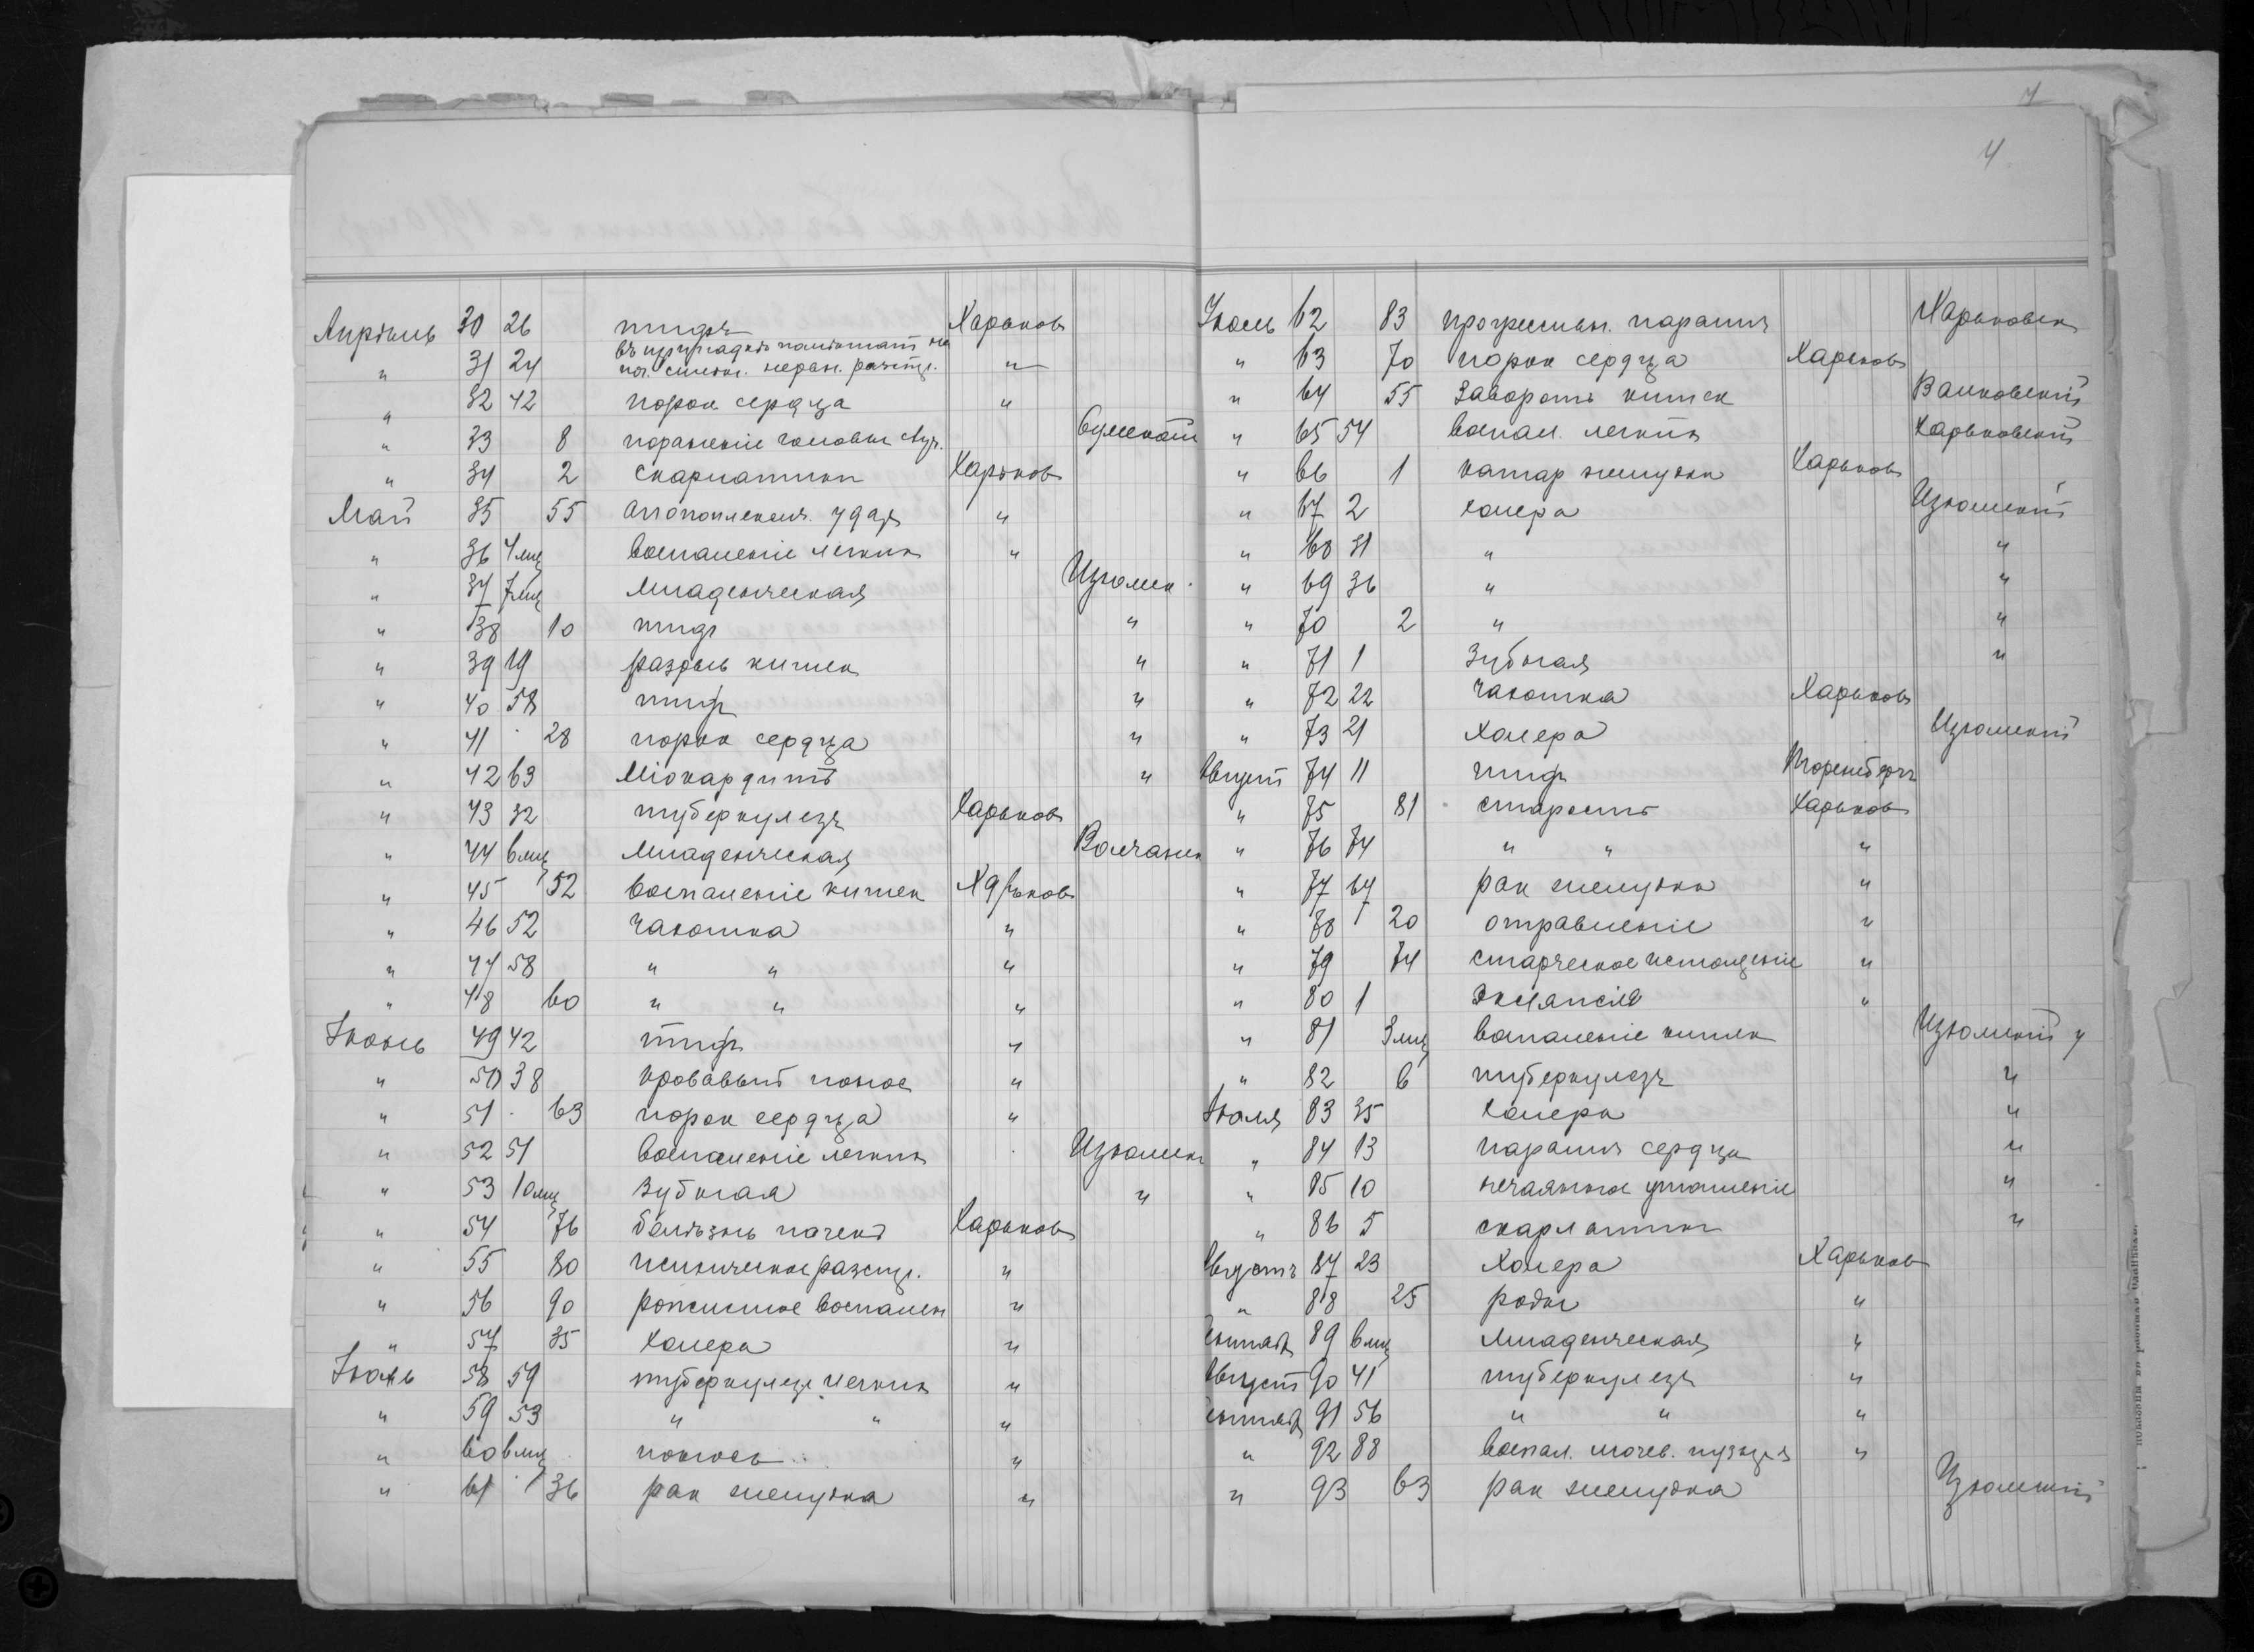 7
4
Апрѣль 30 26 тифъ Харьков
" 31 24 въ припадкѣ
поч. сильн. нерв. разстр. "
" 32 42 порок сердца "
" 33 8 пораженіе головки Сумской
" 34 2 скарлатин Харьков
Май 35 55 апоплексич. удар "
" 36 4 мц воспаленіе легких "
" 37 7 мц младенческая Изюмск.
" 38 10 тиф "
" 39 19 кишек "
" 40 58 тиф "
" 41 28 порок сердца "
" 42 63 Міокардитъ "
" 43 32 туберкулезъ Харьков
" 44 6 мц младенческая Волчанск
" 45 52 воспаленіе кишек Харьков
" 46 52 чахотка "
" 47 58 " " "
" 48 60 " " "
Іюнь 49 42 тиф "
" 50 38 кровавый понос "
" 51 63 порок сердца "
" 52 51 воспаленіе легких Изюмск
" 53 10 мц зубная "
" 54 76 болѣзнь почекъ Харьков
" 55 80 психическое разстр. "
" 56 90 рожистое воспален "
" 57 35 холера "
Іюль 58 59 туберкулез легких "
" 59 53 " " "
" 60 6 мц поносъ "
" 61 36 рак желудка "
Іюль 62 83 прогрессивн. паралич Харьковск
" 63 70 порок сердца Харьков
" 64 55 Заворотъ кишек Валковский
" 65 54 воспал. легких Харьковскій
" 66 1 катар желудка Харьков
" 67 2 холера Изюмскій
" 68 31 " "
" 69 36 " "
" 70 2 " "
" 71 1 Зубная "
" 72 22 чахотка Харьков
" 73 21 холера Изюмскій
Август 74 11 тиф
" 75 81 старость Харьков
" 76 74 " " "
" 77 67 рак желудка "
" 78 20 отравленіе "
" 79 74 старческое истощеніе "
" 80 1 Эклампсія "
" 81 3 мц воспаленіе кишек Изюмскій у
" 82 6 туберкулезъ "
Іюля 83 35 холера "
" 84 13 паралич сердца "
" 85 10 нечаянное утопленіе "
" 86 5 скарлатин "
Августъ 87 23 Холера Харьков
" 88 25 роды "
Сентяб 89 6 мц младенческая "
Август 90 41 туберкулезъ "
Сентяб 91 56 " " "
" 92 88 воспал. мочев. пузыря "
" 93 63 рак желудка Изюмский